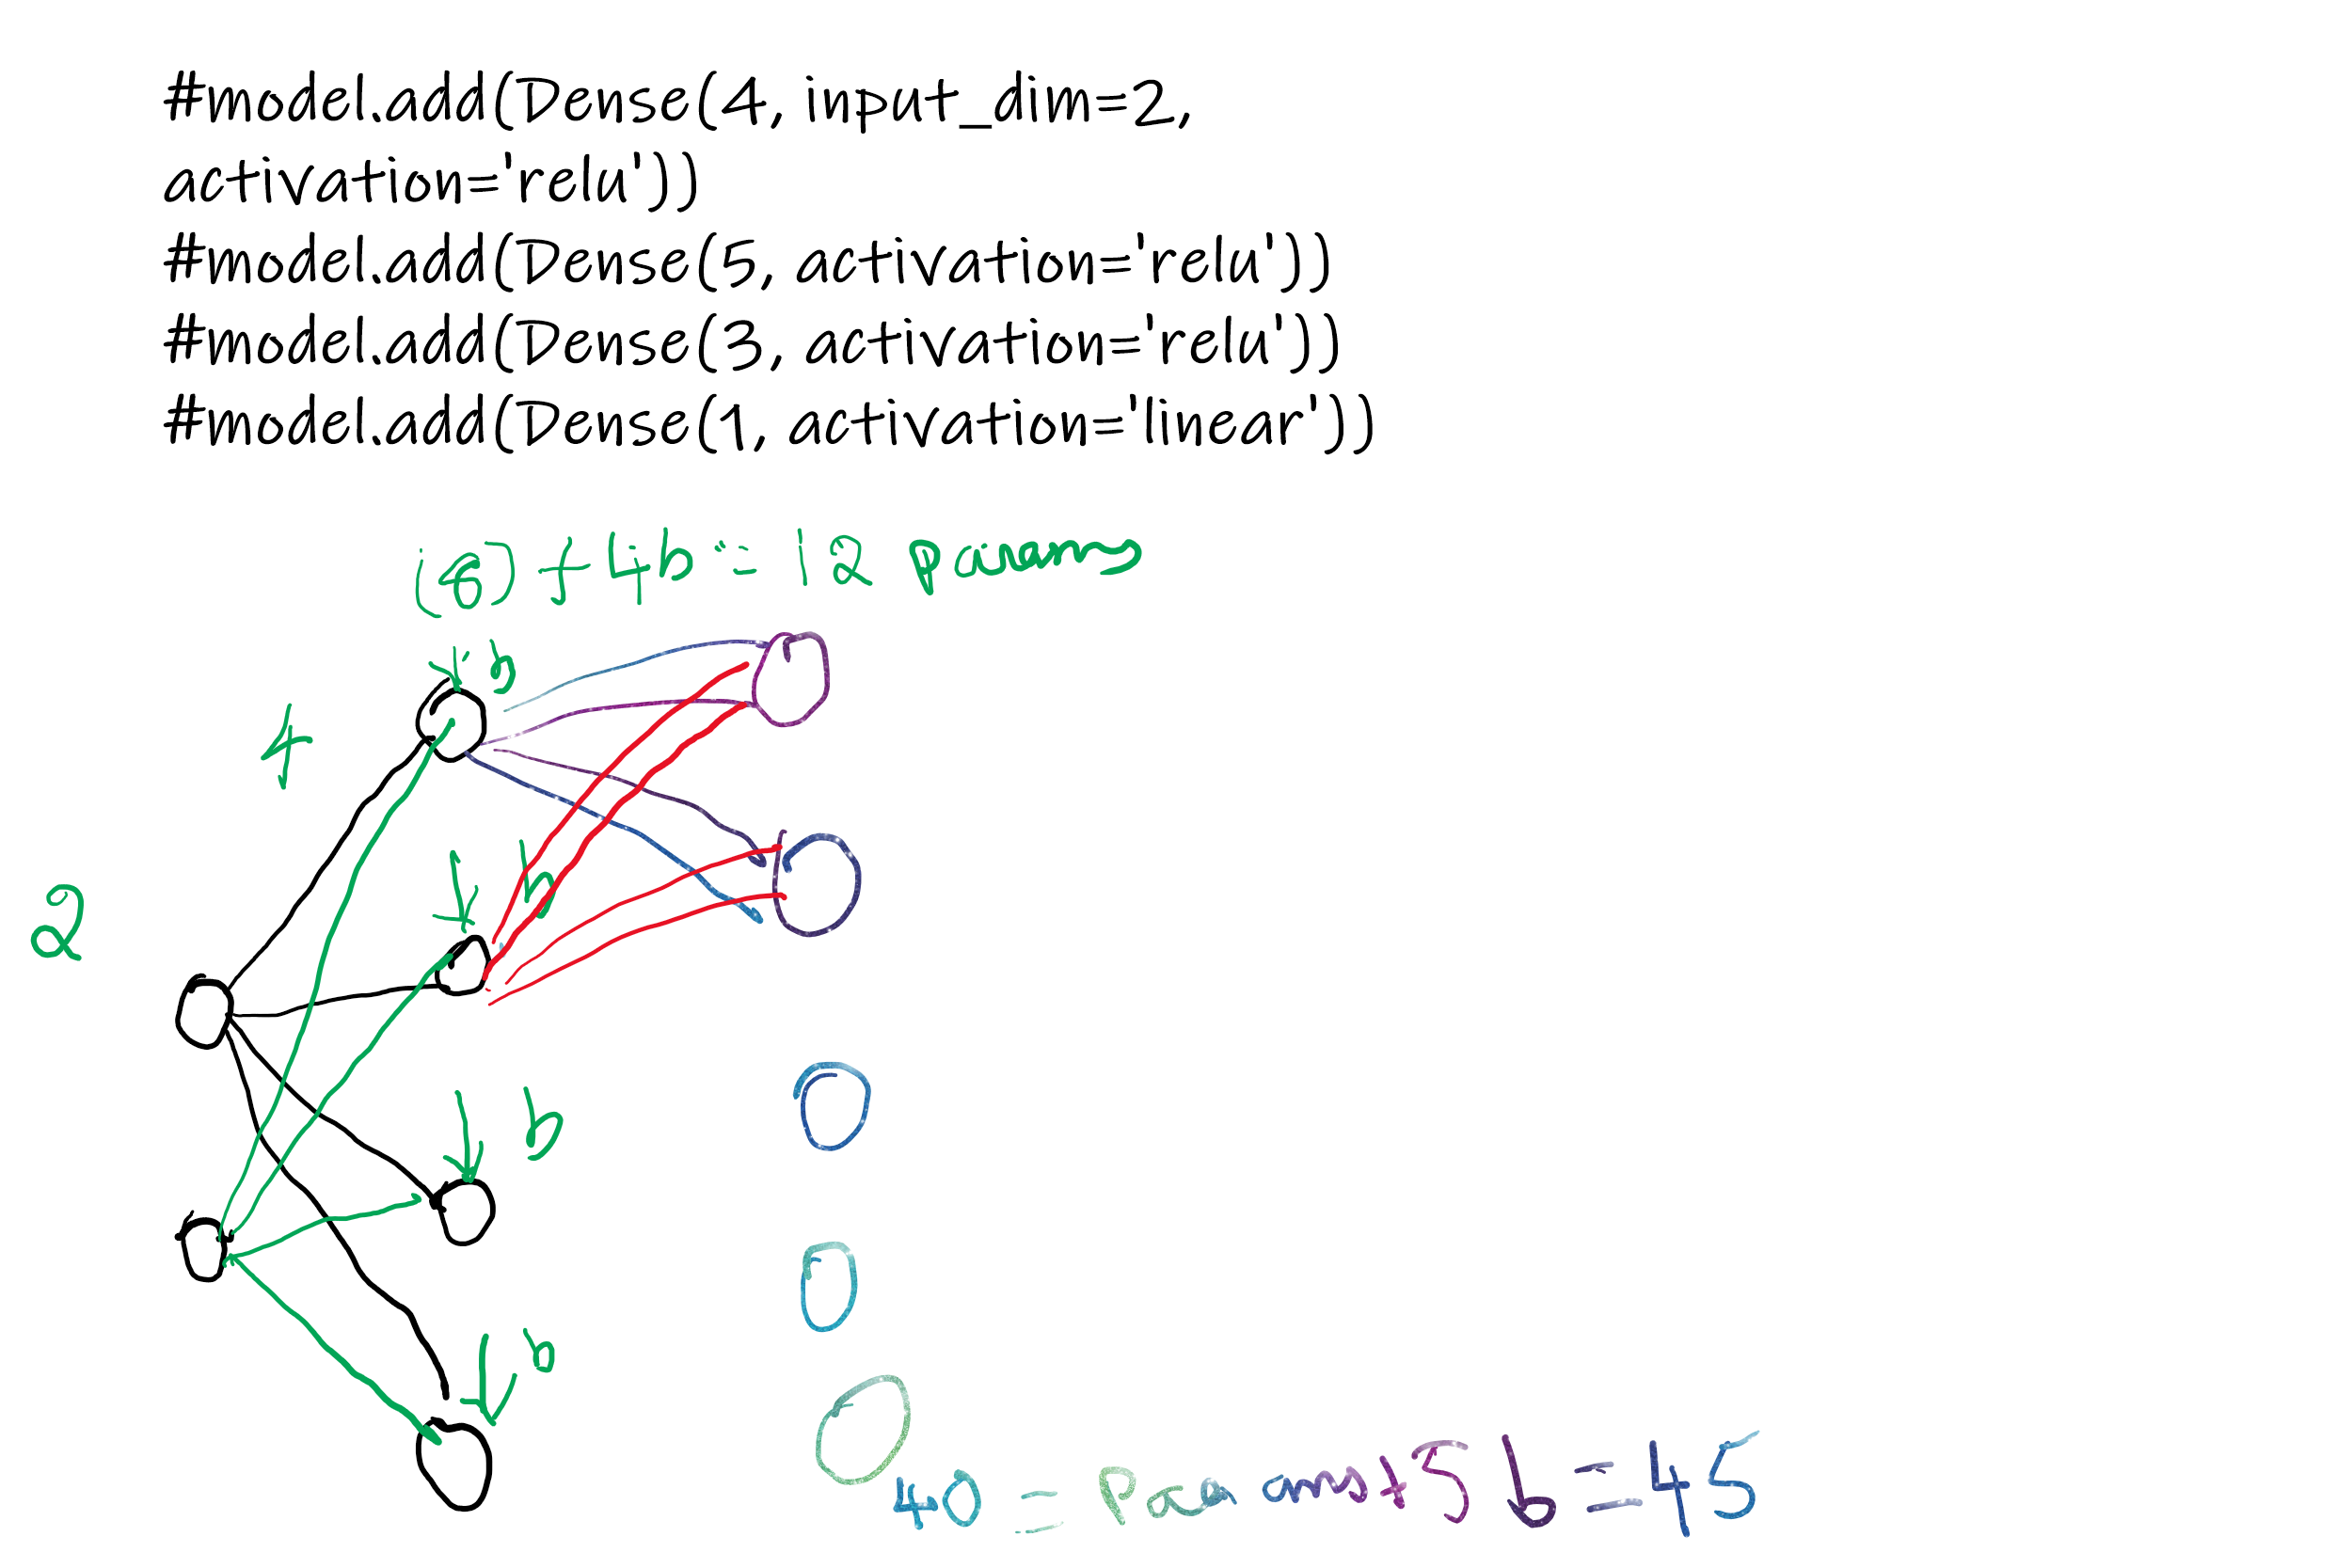 #model.add(Dense(4, input_dim=2,
activation='relu'))
#model.add(Dense(5, activation='relu'))
#model.add(Dense(3, activation='relu'))
#model.add(Dense(1, activation='linear'))
(8) + 4b = 12 params
b
4
b
2
b
b
40 = Params + 5 b = 45